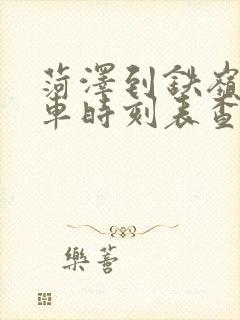 菏澤到鉄嶺
車時刻表查
樂薈